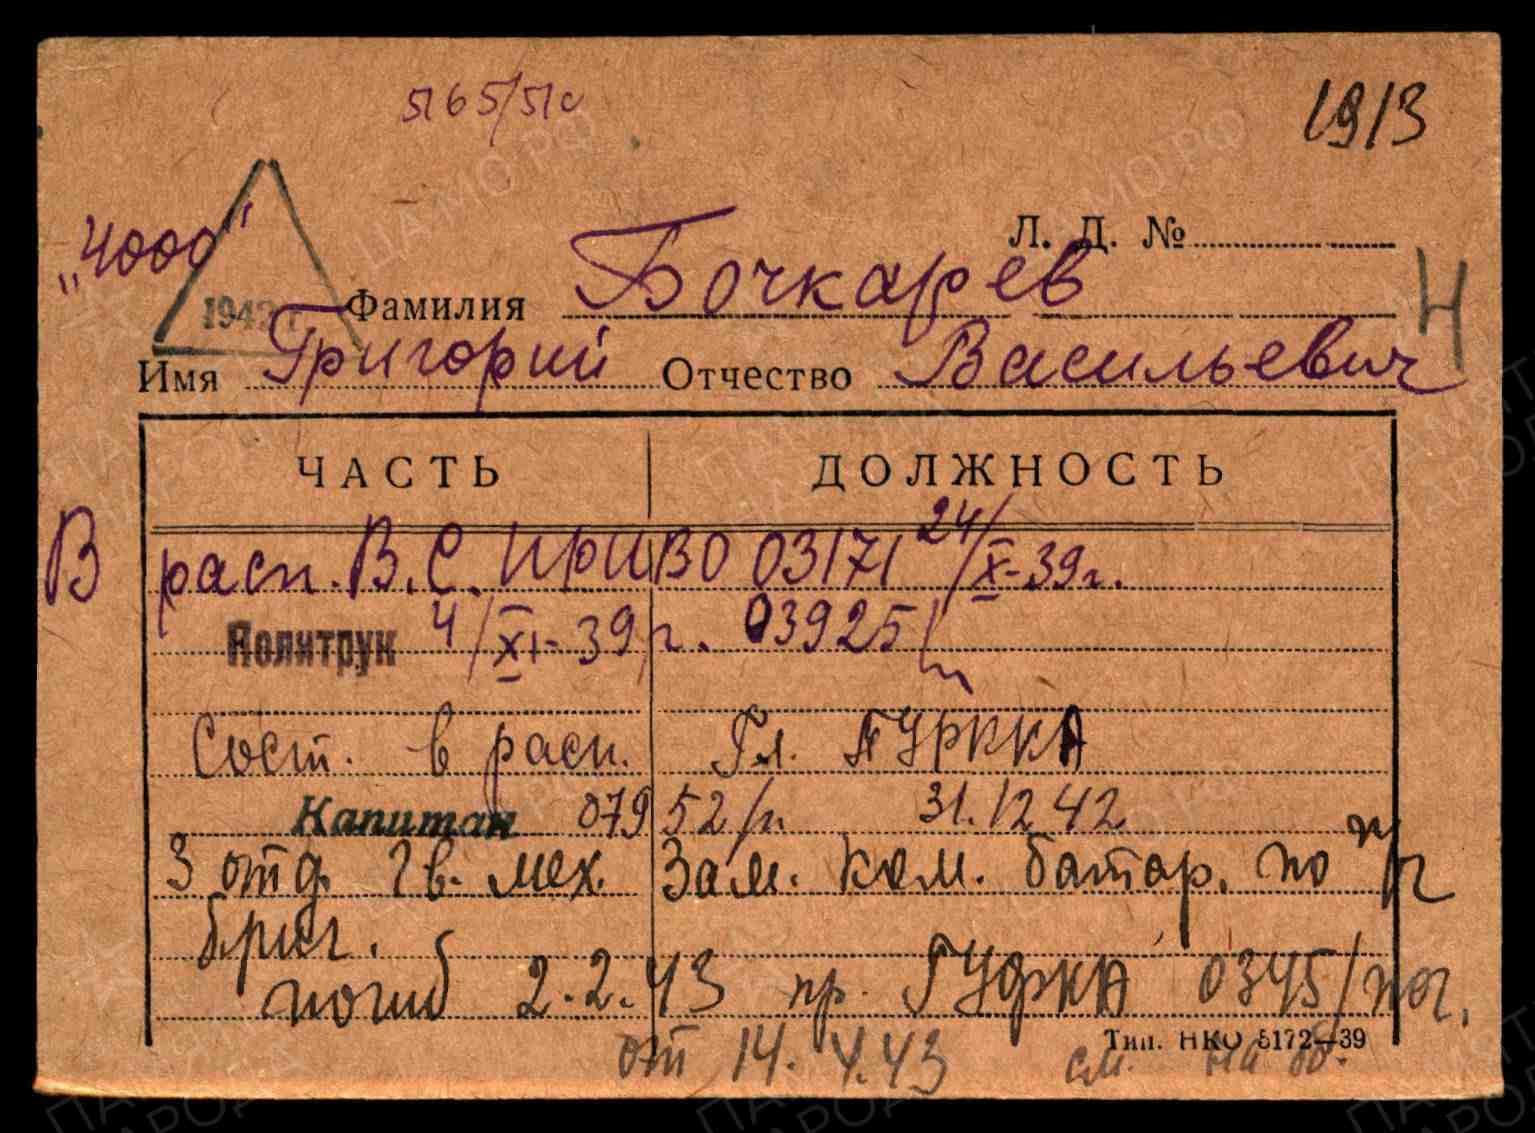 5165/51с
1913
„4000"
Л. Д. №
1942 г.
Фамилия Бочкарев
Ч
Имя Григорий Отчество Васильевич
ЧАСТЬ ДОЛЖНОСТЬ
В расп. В.С. ПРИВО 03171 24/X-39г.
Политрук 4/XI-39г. 03925/п
Сост. в расп. Гл. ПУРККА
Капитан 07952/п. 31.12 42
3 отд. гв. мех. Зам. ком. батар. по п/ч
бриг.
погиб 2.2.43 пр. ГУФКА 0345/пог.
Тип. НКО 5172—39
от 14.4.43 см. на об.
ПАМЯТЬ НАРОДА
ЦА МО РФ